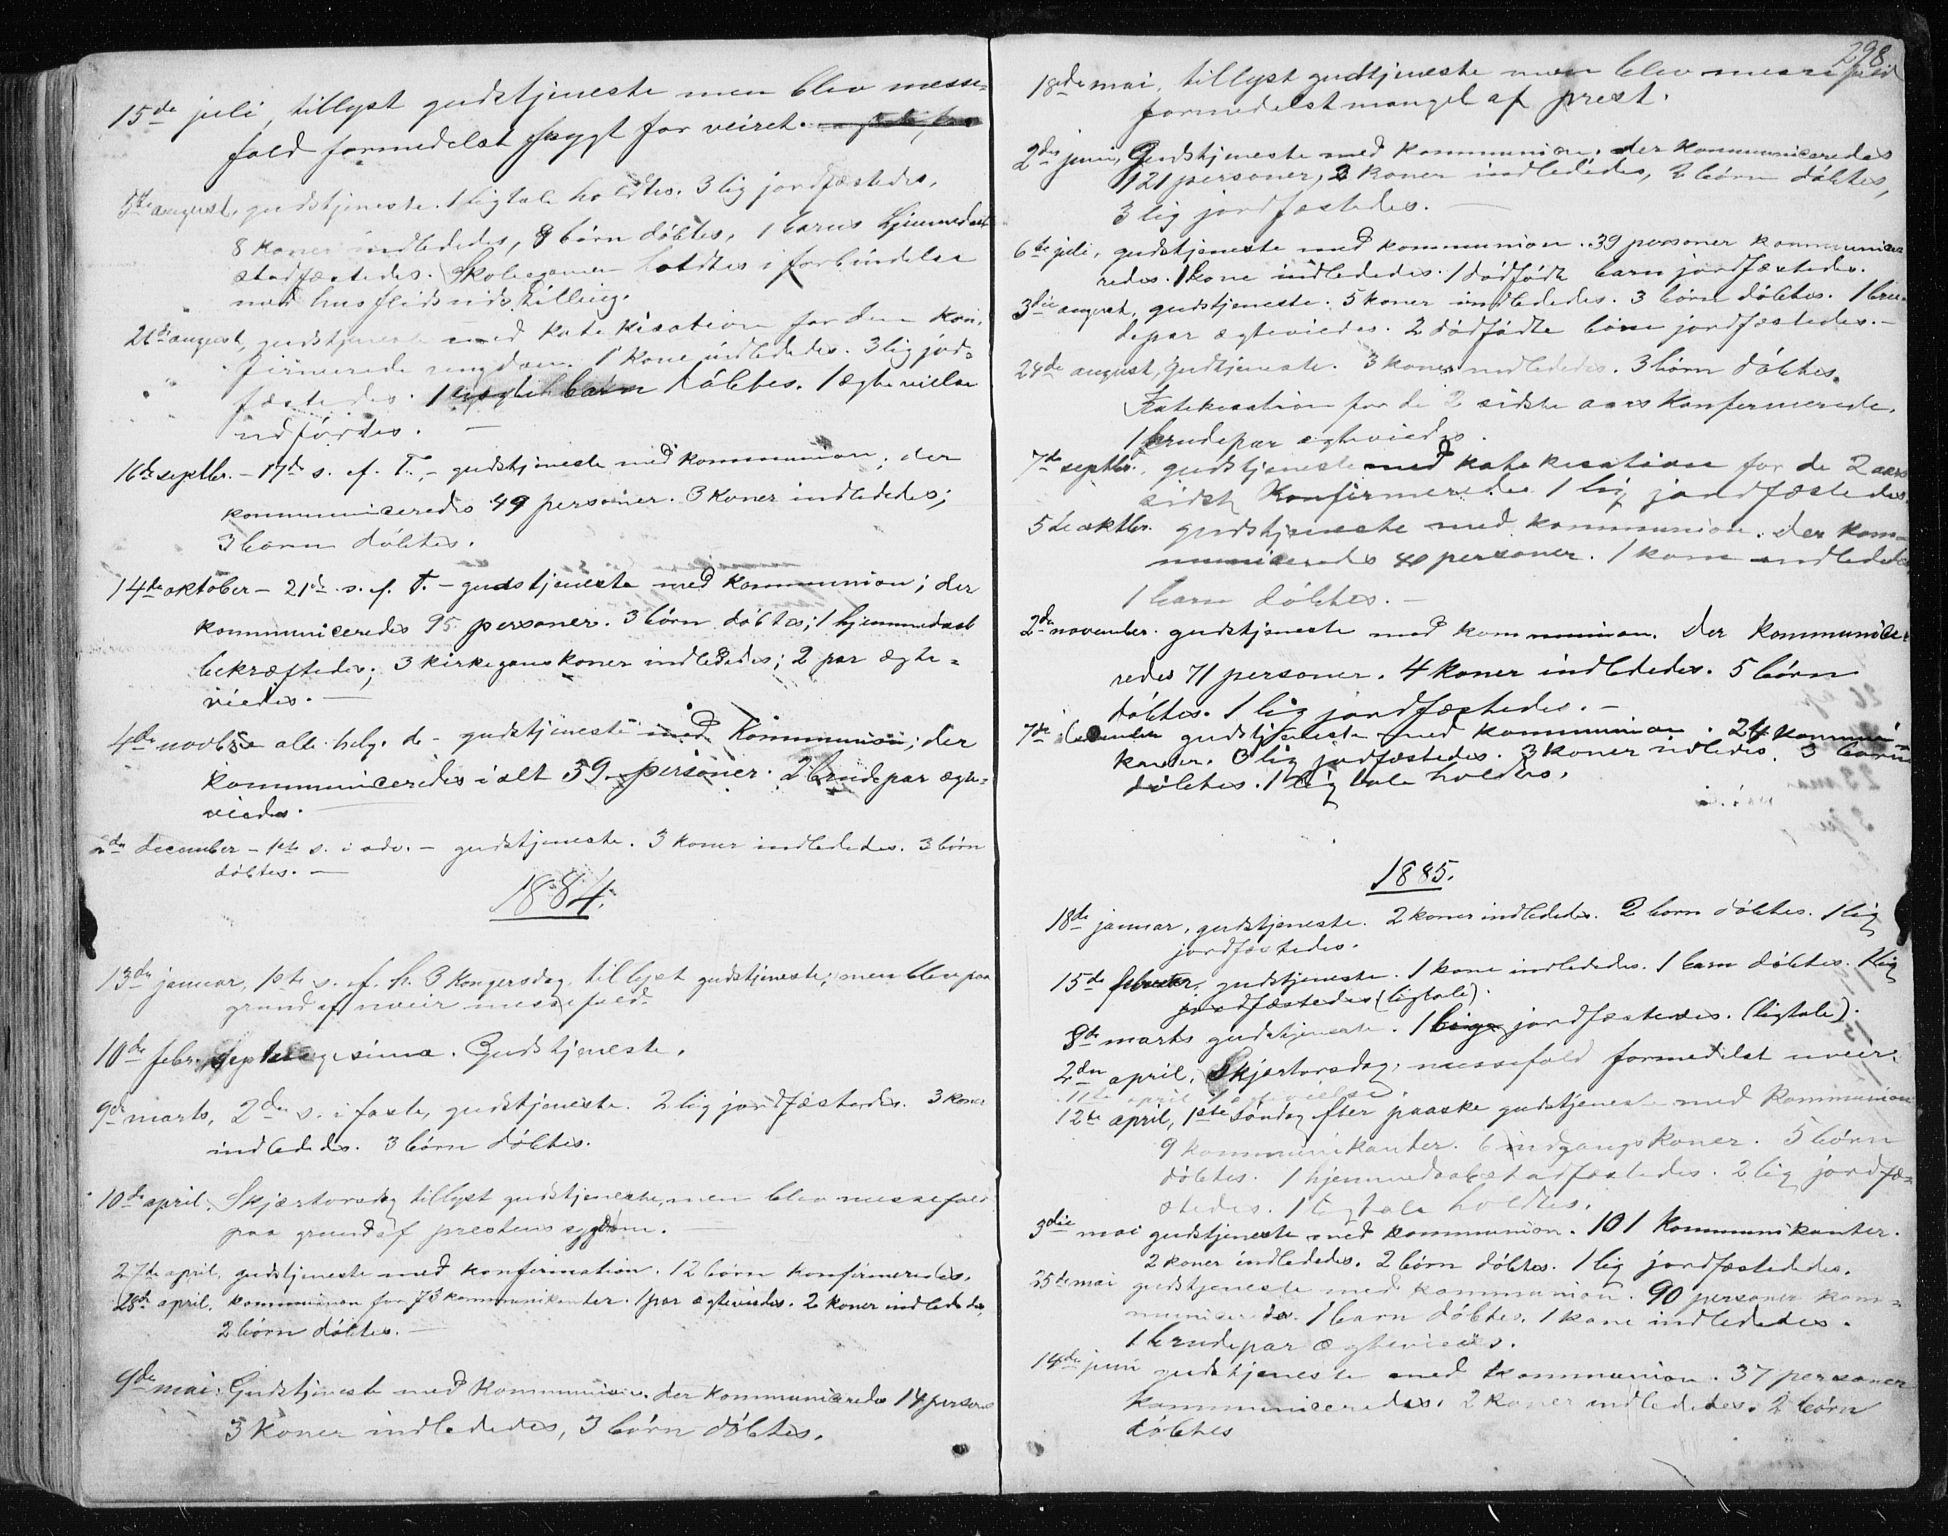 15de juli, tillyst gudstjeneste men blev messe-
fald formedelst frygt for veiret.
5te august, gudstjeneste. 1 ligtale holdtes. 3 lig jordfæstedes.
8 koner indlededes, 8 børn døbtes, 1 barns hjemmedaab
stadfæstedes. holdtes i forbindelse
med husflidsudstilling.
26de august, gudstjeneste med katekisation for den kon-
firmerede ungdom. 1 kone indlededes. 3 lig jord-
fæstedes. 1 barn døbtes. 1 ægtevielse
udførdes. —
16de septbr. – 17de s. ef. T., – gudstjeneste med kommunion; der
kommuniceredes 49 personer. 3 koner indlededes;
3 børn døbtes.
14de oktober – 21de s. ef. T. – gudstjeneste med kommunion; der
kommuniceredes 95 personer. 3 børn døbtes; 1 hjemmedaab
bekræftedes; 3 kirkegangskoner indlededes; 2 par ægte-
viedes. —
4de novbr alle helg. d – gudstjeneste med Kommunion; der
kommuniceredes i alt 59 personer. 2 brudepar ægte-
viedes.
2den december – 1ste s. i adv. – gudstjeneste. 3 koner indlededes. 3 børn
døbtes. —
1884.
13de januar, 1ste s. ef. h. 3 kongersdag, tillyst gudstjeneste; men blev paa
grund af uveir messefald.
10de febr. septuagesima. Gudstjeneste.
9de marts, 2den s. i faste, gudstjeneste. 2 lig jordfæstedes. 3 koner
indlededes. 3 børn døbtes.
10de april. Skjærtorsdag tillyst gudstjeneste, men blev messefald
paa grund af prestens sygdom. —
27de april, gudstjeneste med konfirmation. 12 børn konfirmeredes.
28de april, kommunion for 73 kommunikanter. 1 par ægteviedes. 2 koner indlededes,
2 børn døbtes. —
9de mai. Gudstjeneste med Kommunion. der kommuniceredes 14 personer
3 koner indlededes, 3 børn døbtes.
298
18de mai, tillyst gudtjeneste men blev messefald
formedelst mangel af prest.
2den juni, Gudstjeneste med kommunion. der kommuniceredes
121 personer, 2 koner indlededes, 2 børn døbtes,
3 lig jordfæstedes. —
6te juli, gudstjeneste med kommunion. 39 personer kommunice-
redes. 1 kone indlededes. 1 dødfødt barn jordfæstedes.
3die august, gudstjeneste. 5 koner indlededes. 3 børn døbtes. 1 bru-
depar ægteviedes. 2 dødfødte børn jordfæstedes. —
24de august, gudtjeneste. 3 koner indlededes. 3 børn døbtes.
Katekisation for de 2 sidste aars Konfermerede.
1 brudepar ægteviedes.
7de septbr. gudstjeneste med katekisation for de 2 aars
sidst Konfirmerede. 1 lig jordfæstedes.
5te oktbr. gudstjeneste med kommunion. der kom-
municeredes 40 personer. 1 kone indlededes
1 barn døbtes. —
2den november. gudstjeneste med kommunion. Der kommunice-
redes 71 personer. 4 koner indlededes. 5 børn
døbtes. 1 lig jordfæstedes. —
7de gudstjeneste med kommunion. 24 kommuni-
kanter. 3 lig jordfæstedes. 3 koner indledes. 3 børn
døbtes. 1 lig tale holdtes.
1885.
18de januar, gudstjeneste. 2 koner indlededes. 2 børn døbtes. 1 lig
jordfæstedes.
15de februar, gudstjeneste. 1 kone indlededes. 1 barn døbtes. 1 lig
jordfæstedes (ligtale).
8de marts gudstjeneste. 1 lig jordfæstedes. (ligtale).
2den april, Skjærtorsdag, messefald formedelst uveir.
11te april 1
12te april, 1ste søndag efter paaske gudstjeneste med kommunion
9 kommunikanter. 6 indgangskoner. 5 børn
døbtes. 1 hjemmedaab stadfæstedes. 2 lig jordfæ-
stedes. 1 ligtale holdtes.
3die mai gudstjeneste med kommunion. 101 kommunikanter.
2 koner indlededes. 2 børn døbtes. 1 lig jordfæstededes.
25de mai gudstjeneste med kommunion. 90 personer kom-
municeredes. 1 barn døbtes. 1 kone indlededes.
1 brudepar ægteviedes.
14de juni gudstjeneste med kommunion. 37 personer
kommuniceredes. 2 koner indlededes. 2 børn
døbtes